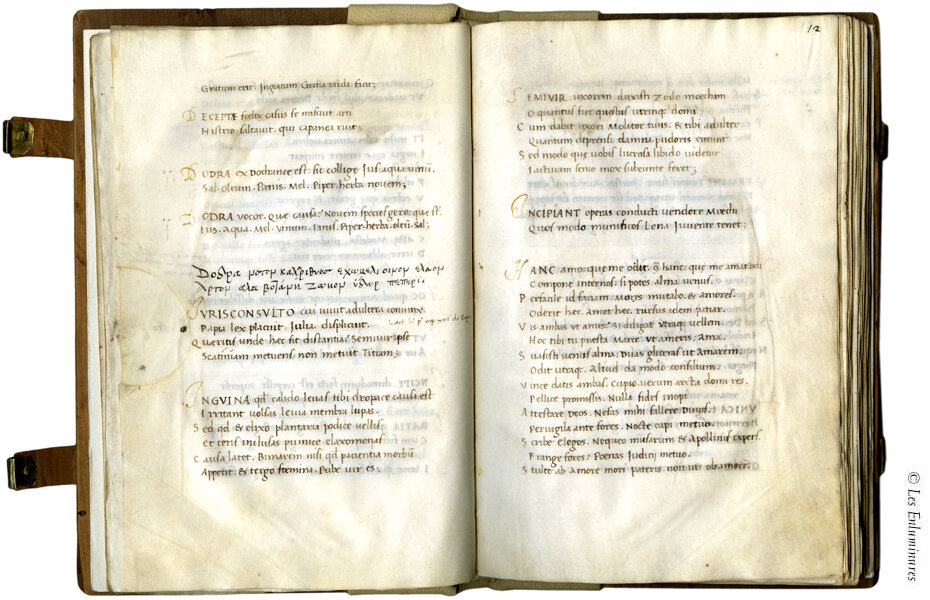 Gratum erit. Ingratum Gratia tarda facit;
DECEPTAE foelix casus se miscuit arti
Histrio saltavit. qui capanea ruit;
DODRA ex Dodrante est. sic collige Ius. aqua. vinu.
Sal. oleum. Panis. Mel. Piper. herba. novem;
DODRA vocor. Que causa? Novem species gero. que st?
Ius. Aqua. Mel. vinum. Panis. Piper. herba. oleu. Sal;
IVRISCONSVLTO cui vivit adultera coniunx
Papia lex placuit. Iulia displicuit.
Queritis unde hec sit distantia? Semivir ipse
Scatiniam metuens non metuit Titiam;
INGVINA qd calido levas tibi dropace causa est
Irritant volsas levia membra lupas.
Sed qd & elixo plantaria podice vellis
et teris inclusas pumice clazomenas
Causa latet. Bimarem nisi qd patientia morbu
Appetit. & tergo foemina. Pube vir es;
12
SEMIVIR uxorem duxisti Zoile moecham
O quantus fiet questus utrinque domi
Cum dabit uxori Molitor tuus. & tibi adulter
Quantum deprensi damna pudoris emunt
Sed modo que vobis lucrosa libido videtur
Iacturam senio mox subeunte feret;
INCIPIANT operas conducti vendere Moechi
Quos modo munificos Lena Iuvente tenet;
HANC amo que me odit. & hanc. que me amat odi
Compone internos. si potes alma venus.
Perfacile id faciam. Mores mutabo. & amores.
Oderit hec. Amet hec. rursus idem patiar.
Vis ambas ut ames? Si diligat utraque vellem.
Hoc tibi tu presta Marce. ut ameris. ama.
Suasisti venus alma. Duas glyceras ut amarem.
Odit utraque. Aliud da modo consilium.
Vince datis ambas. Cupio. verum arcta domi res.
Pellice promissis. Nulla fides inopi
Attestare Deos. Nefas mihi fallere Divos.
Pervigila ante fores. Nocte capi metuo.
Scribe Elegos. Nequeo musarum & Apollinis expers.
Frange fores. Poenas Iudicij metuo.
Stulte ab amore mori pateris. non vis ob amore.
© Les Enluminures